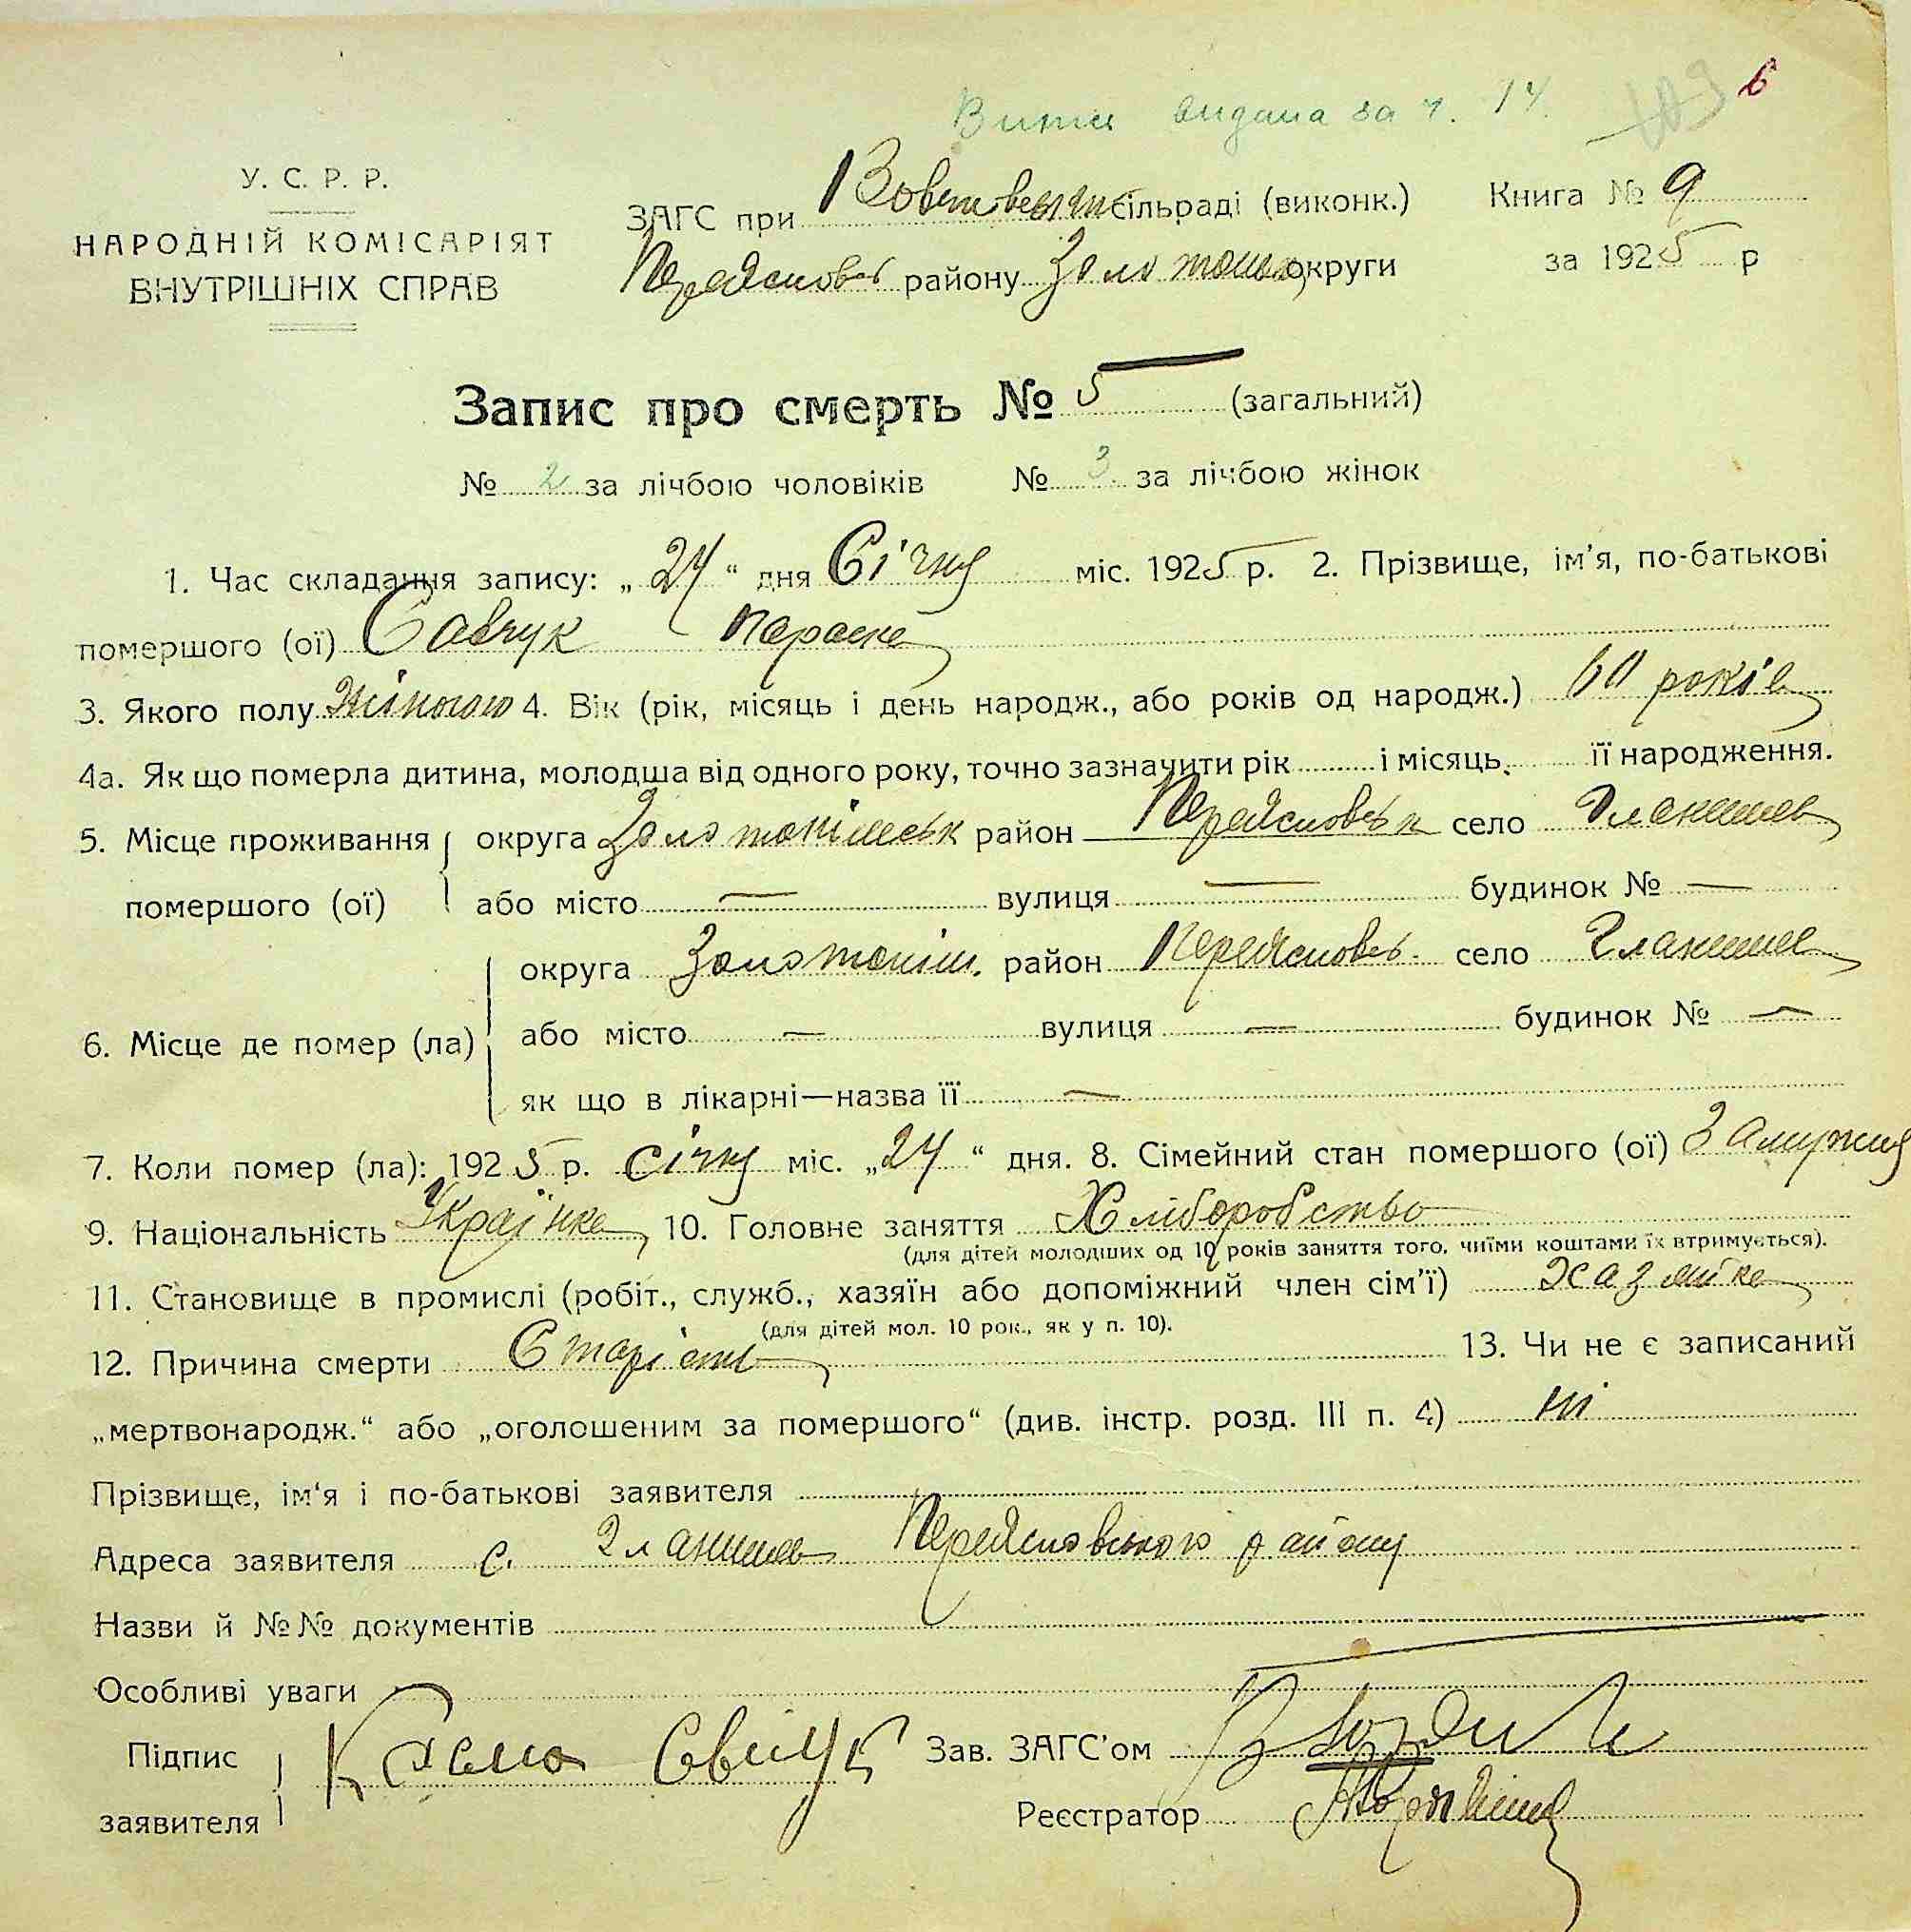 видана за ч. 14.
6
У. С. Р. Р.
НАРОДНІЙ КОМІСАРІЯТ
ВНУТРІШНІХ СПРАВ
ЗАГС при сільраді (виконк.)
Переяслов району Золотоніськ округи
Книга № 9
за 1925 р
Запис про смерть № 5 (загальний)
№ 2 за лічбою чоловіків № 3 за лічбою жінок
1. Час складання запису: „24“ дня Січня міс. 1925 р. 2. Прізвище, ім’я, по-батькові
помершого (ої) Савчук Параска
3. Якого полу Жіночого 4. Вік (рік, місяць і день народж., або років од народж.) 60 років
4а. Як що померла дитина, молодша від одного року, точно зазначити рік і місяць. її народження.
5. Місце проживання помершого (ої)
округа Золотоніськ район Переясловськ село Гланишев
або місто — вулиця — будинок № —
6. Місце де помер (ла)
округа Золотоніш. район Переясловсь. село Гланишев
або місто — вулиця — будинок № —
як що в лікарні—назва її —
7. Коли помер (ла): 1925 р. січня міс. „24“ дня. 8. Сімейний стан помершого (ої) Замужня
9. Національність Українка 10. Головне заняття Хліборобство
(для дітей молодших од 10 років заняття того, чиїми коштами їх втримується).
11. Становище в промислі (робіт., служб., хазяїн або допоміжний член сім’ї) Хазяйка
(для дітей мол. 10 рок., як у п. 10).
12. Причина смерти Старість 13. Чи не є записаний
„мертвонародж.“ або „оголошеним за помершого“ (див. інстр. розд. III п. 4) ні
Прізвище, ім‘я і по-батькові заявителя
Адреса заявителя с. Гланишев Переясловського району
Назви й №№ документів
Особливі уваги
Підпис заявителя
Зав. ЗАГС’ом
Реєстратор